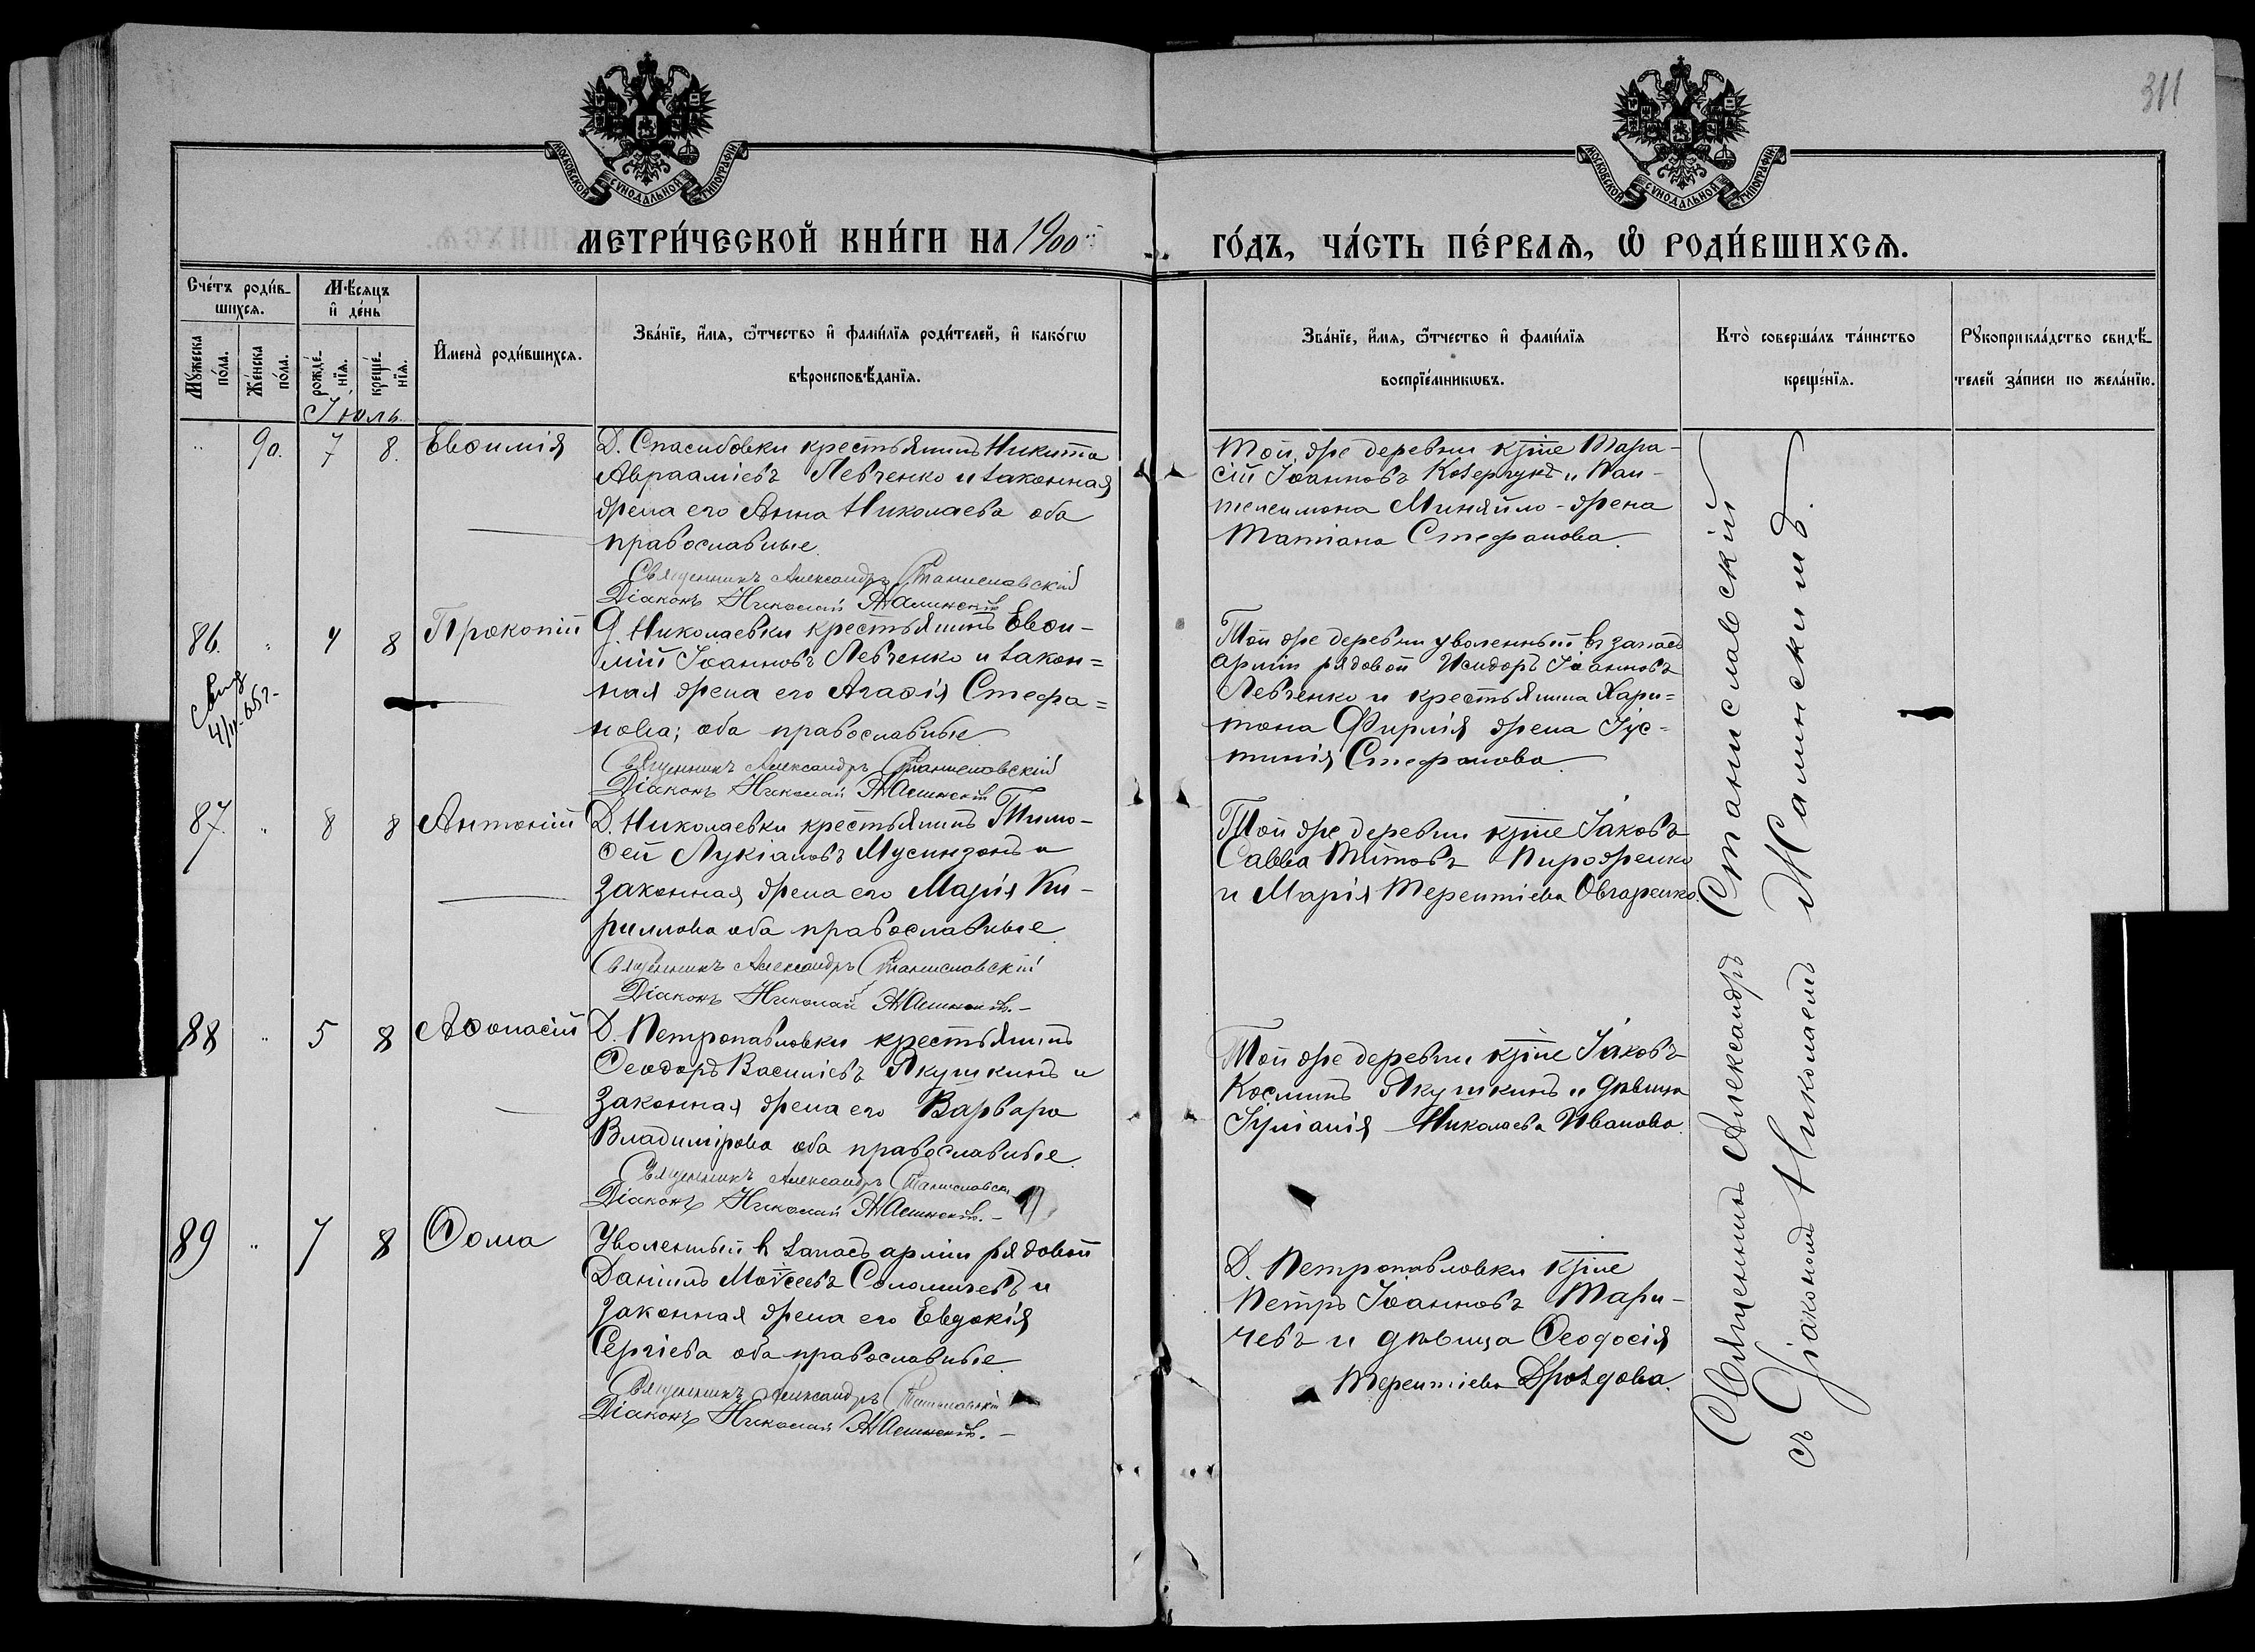 311
МОСКОВСКОЙ СУНОДАЛЬНОЙ ТИПОГРАФІИ
МОСКОВСКОЙ СУНОДАЛЬНОЙ ТИПОГРАФІИ
МЕТРИ́ЧЕСКОЙ КНИ́ГИ НА 1900
ГО́ДЪ, ЧА́СТЬ ПЕ́РВАѦ, Ѡ҆ РОДИ́ВШИХСѦ.
Сче́тъ роди́в-
шихсѧ.
Мꙋ́жеска по́ла.
Же́нска по́ла.
Мѣ́сѧцъ
и҆ де́нь
рожде́-нїѧ.
креще́-нїѧ.
И҆мена̀ роди́вшихсѧ.
Зва́нїе, и҆́мѧ, ѻ҆́тчество и҆ фами́лїѧ роди́телей, и҆ како́гѡ
вѣроисповѣ́данїѧ.
Зва́нїе, и҆́мѧ, ѻ҆́тчество и҆ фами́лїѧ
воспрїе́мникѡвъ.
Кто̀ соверша́лъ та́инство
креще́нїѧ.
Рꙋкоприкла́дство свидѣ́-
телей за́писи по жела́нїю.
Іюль.
" 90. 7 8. Евѳимія
Д. Спасибовки крестьянинъ Никита
Авраамiевъ Левченко и законная
жена его Анна Николаева оба
православные.
Священникъ Александръ Станиславскій
Діаконъ Николай Жалинскій
Той же деревни кр̅не Тара-
сій Іоанновъ Козерчукъ и Пан-
телеимона Миняйло - жена
Татіана Стефанова.
86. " 4 8 Прокопій
Д. Николаевки крестьянинъ Евѳи-
мій Іоанновъ Левченко и закон=
ная жена его Агаѳія Стефа=
нова; оба православные
Священникъ Александръ Станиславскій
Діаконъ Николай Жалинскій
Той же деревни уволенный въ запасъ
арміи рядовой Исидоръ Іоанновъ
Левченко и крестьянина Хари=
тона Фирмія жена Іус=
тинія Стефанова
87. " 8 8 Антоній
Д. Николаевки крестьянинъ Тимо-
ѳей Лукіановъ Мусинзонъ и
законная жена его Марія Ки-
риллова оба православные
Священникъ Александръ Станиславскій
Діаконъ Николай Жалинскій.-
Той же деревни кр̅не Іаковъ
Савва Титовъ Пироженко
и Марія Терентіева Овчаренко.
88 " 5 8 Аѳонасій
Д. Петропавловки крестьянинъ
Ѳеодоръ Василіевъ Якушкинъ и
законная жена его Варвара
Владимірова оба православные.
Священникъ Александръ Станиславскій
Діаконъ Николай Жалинскій.-
Той же деревни кр̅не Іаковъ
Косминъ Якушкинъ и дѣвица
Іуліанія Николаева Иванова.
89 " 7 8 Ѳома
Уволенный въ запасъ арміи рядовой
Даніилъ Моѵсеевъ Соломичевъ и
законная жена его Евдокія
Сергіева оба православные
Священникъ Александръ Станиславскій
Діаконъ Николай Жалинскій.-
Д. Петропавловки кр̅не
Петръ Іоанновъ Тари-
чевъ и дѣвица Ѳеодосія
Терентіева Дроздова.
Священникъ Александръ Станиславскій
съ Діакономъ Николаемъ Жалинскимъ.